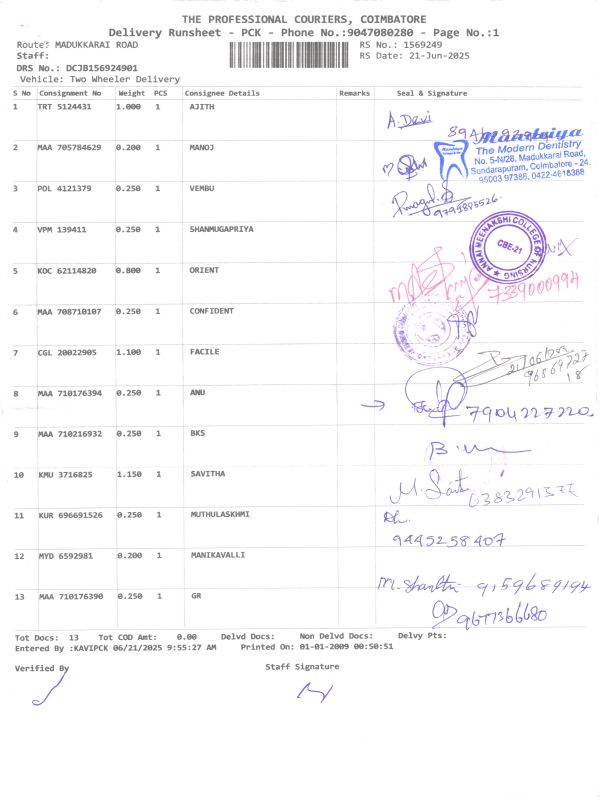 THE PROFESSIONAL COURIERS, COIMBATORE
Delivery Runsheet - PCK - Phone No.:9047080280 - Page No.:1
Route: MADUKKARAI ROAD RS No.: 1569249
Staff: RS Date: 21-Jun-2025
DRS No.: DCJB156924901
Vehicle: Two Wheeler Delivery
S No Consignment No Weight PCS Consignee Details Remarks Seal & Signature
1 TRT 5124431 1.000 1 AJITH
A. Devi
2 MAA 705784629 0.200 1 MANOJ
The Modern Dentistry
No. 5-N/28, Madukkarai Road,
Sundarapuram, Coimbatore - 24.
95003 97386, 0422-4618388
3 POL 4121379 0.250 1 VEMBU
9799885526
4 VPM 139411 0.250 1 SHANMUGAPRIYA
ANNAI MEENAKSHI COLLEGE OF NURSING
CBE-21
5 KOC 62114820 0.800 1 ORIENT
7339000994
6 MAA 708710107 0.250 1 CONFIDENT
7 CGL 20022905 1.100 1 FACILE
8 MAA 710176394 0.250 1 ANU
7904227220
9 MAA 710216932 0.250 1 BKS
10 KMU 3716825 1.150 1 SAVITHA
11 KUR 696691526 0.250 1 MUTHULASKHMI
9445258407
12 MYD 6592981 0.200 1 MANIKAVALLI
M. Shanthi 9159689194
13 MAA 710176390 0.250 1 GR
9677366680
Tot Docs: 13 Tot COD Amt: 0.00 Delvd Docs: Non Delvd Docs: Delvy Pts:
Entered By :KAVIPCK 06/21/2025 9:55:27 AM Printed On: 01-01-2009 00:50:51
Verified By Staff Signature